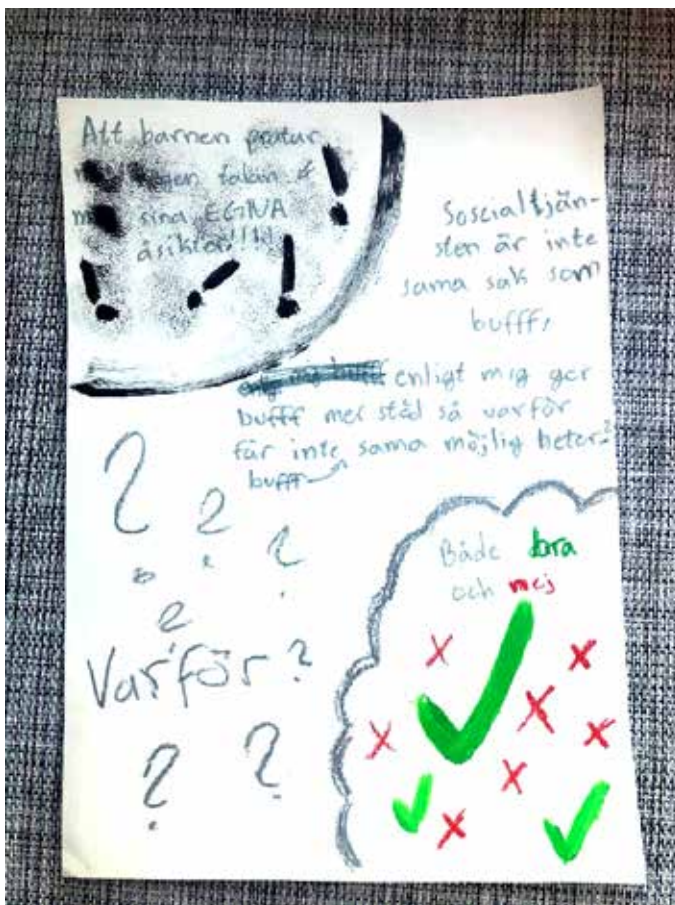 Att barnen pratar
egen talan &
sina EGNA
åsikter!!!!
Soscialtjän-
sten är inte
sama sak som
bufff,
enligt mig ger
bufff mer stöd så varför
får inte sama möjlig heter?
bufff
?
?
?
?
Varför?
?
?
Både bra
och mej